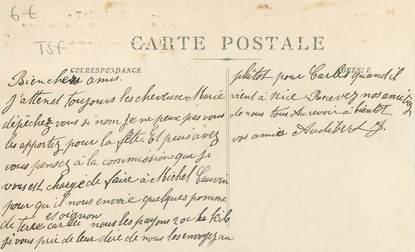 6 €
TSF
CARTE POSTALE
CORRESPONDANCE
Bien chers amis.
J'attend toujours les cheveux Marie
dépêchez vous si nom je ne peux pas vous
les apportez pour la fête. Et puis avez
vous pensez à la commission que je
vous est chargé de faire à Michel
pour qu'il nous envoie quelques pomme
et oignon
de terre nous les payons 20c le kilo
je vous prie de leur dire de nous les envoyez au
plutôt pour quand il
vient à Nice Recevez nos amitiés
de nous tous Au revoir à bientot
vos amie Audibert J.